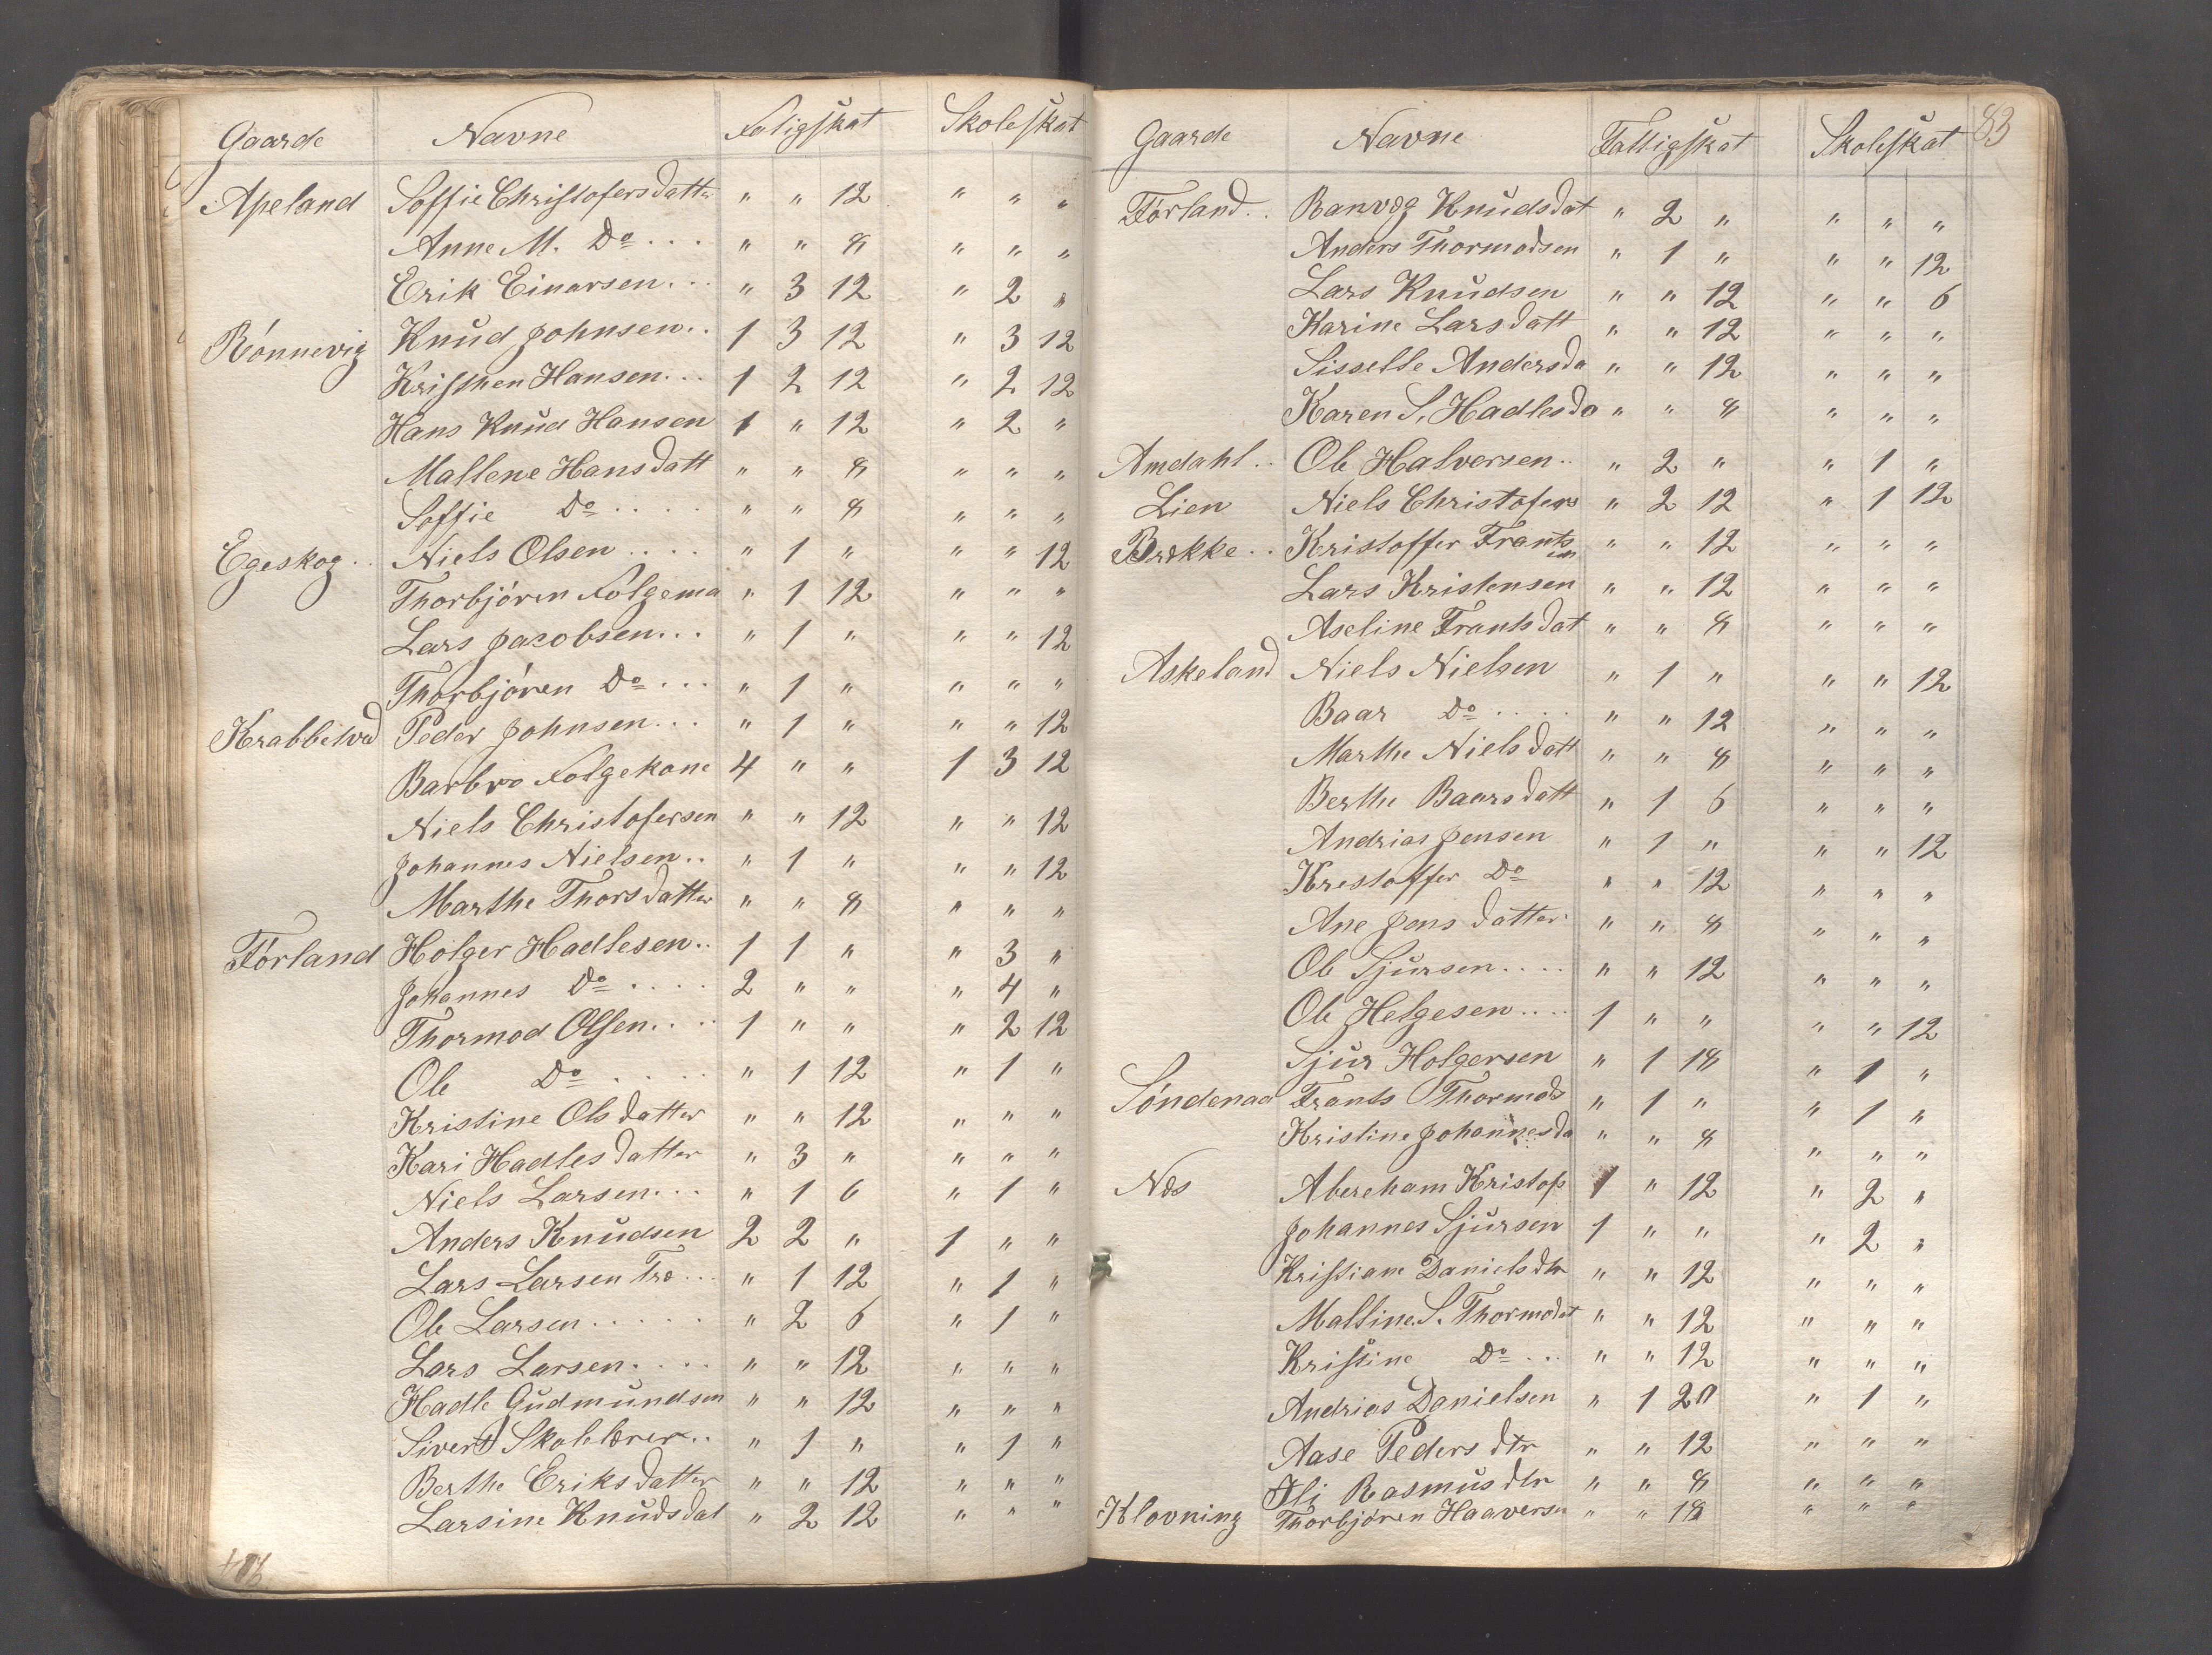 Gaarde Navne Faligskat Skoleskat
Apeland Soffie Christofersdatter " " 12 " " "
Anne M. Do ... " " 8 " " "
Erik Einarsen ... " 3 12 " 2 "
Rönnevig Knud Johnsen .. 1 3 12 " 3 12
Kristhen Hansen ... 1 2 12 " 2 12
Hans Knud Hansen 1 " 12 " 2 "
Mallene Hansdatt " " 8 " " "
Soffie Do .... " " 8 " " "
Egeskog .. Niels Olsen .... " 1 " " " 12
Thorbjören Folgema " 1 12 " " "
Lars Jacobsen ... " 1 " " " 12
Thorbjören Do ... " 1 " " " "
Krabbetved Peder Johnsen ... " 1 " " " 12
Barbro Folgekone 4 " " 1 3 12
Niels Christofersen " " 12 " " 12
Johannes Nielsen .. " 1 " " " 12
Marthe Thorsdatter " " 8 " " "
Förland Holger Hadlesen .. 1 1 " " 3 "
Johannes Do .... 2 " " " 4 "
Thormod Olsen .... 1 " " " 2 12
Ole Do ..... " 1 12 " 1 "
Kristine Olsdatter " " 12 " " "
Kari Hadlesdatter " 3 " " " "
Niels Larsen ... " 1 6 " 1 "
Anders Knudsen 2 2 " 1 " "
Lars Larsen Træ ... " 1 12 " 1 "
Ole Larsen ..... " 2 6 " 1 "
Lars Larsen .... " " 12 " " "
Hadle Gudmundsen " " 12 " " "
Sivert Skolelærer .. " 1 " " 1 "
Berthe Eriksdatter " " 12 " " "
Larsine Knudsdat " 2 12 " " "
83
Gaarde Navne Fattigskat Skoleskat
Förland .. Ranvæg Knudsdat " 2 " " " "
Anders Thormodsen " 1 " " " 12
Lars Knudsen " " 12 " " 6
Karine Larsdatt " " 12 " " "
Sisselle Andersda " " 12 " " "
Karen S. Hadlesda " " 8 " " "
Amdahl .. Ole Halversen .. " 2 " " 1 "
Lien Niels Christofers " 2 12 " 1 12
Brække .. Kristoffer Frantsen " " 12 " " "
Lars Kristensen " " 12 " " "
Aseline Frantsdat " " 8 " " "
Askeland Niels Nielsen " 1 " " " 12
Baar Do .... " " 12 " " "
Marthe Nielsdatt " " 8 " " "
Berthe Baarsdatt " 1 6 " " "
Andrias Jensen " 1 " " " 12
Krestoffer Do " " 12 " " "
Ane Jensdatter " " 8 " " "
Ole Sjursen .... " " 12 " " "
Ole Helgesen .... 1 " " " " 12
Sjur Holgersen " 1 18 " 1 "
Söndenaa Frants Thormods " 1 " " 1 "
Kristine Johannesda " " 8 " " "
Næs Abereham Kristof 1 " 12 " 2 "
Johannes Sjursen 1 " " " 2 "
Kristiane Danielsdtr " " 12 " " "
Malline S. Thormodat " " 12 " " "
Kristine Do ... " " 12 " " "
Andrias Danielsen " 1 20 " 1 "
Aase Pedersdtr " " 12 " " "
Ili Rasmusdtr " " 8 " " "
Klovning Thorbjören Haaversn " " 18 " " "